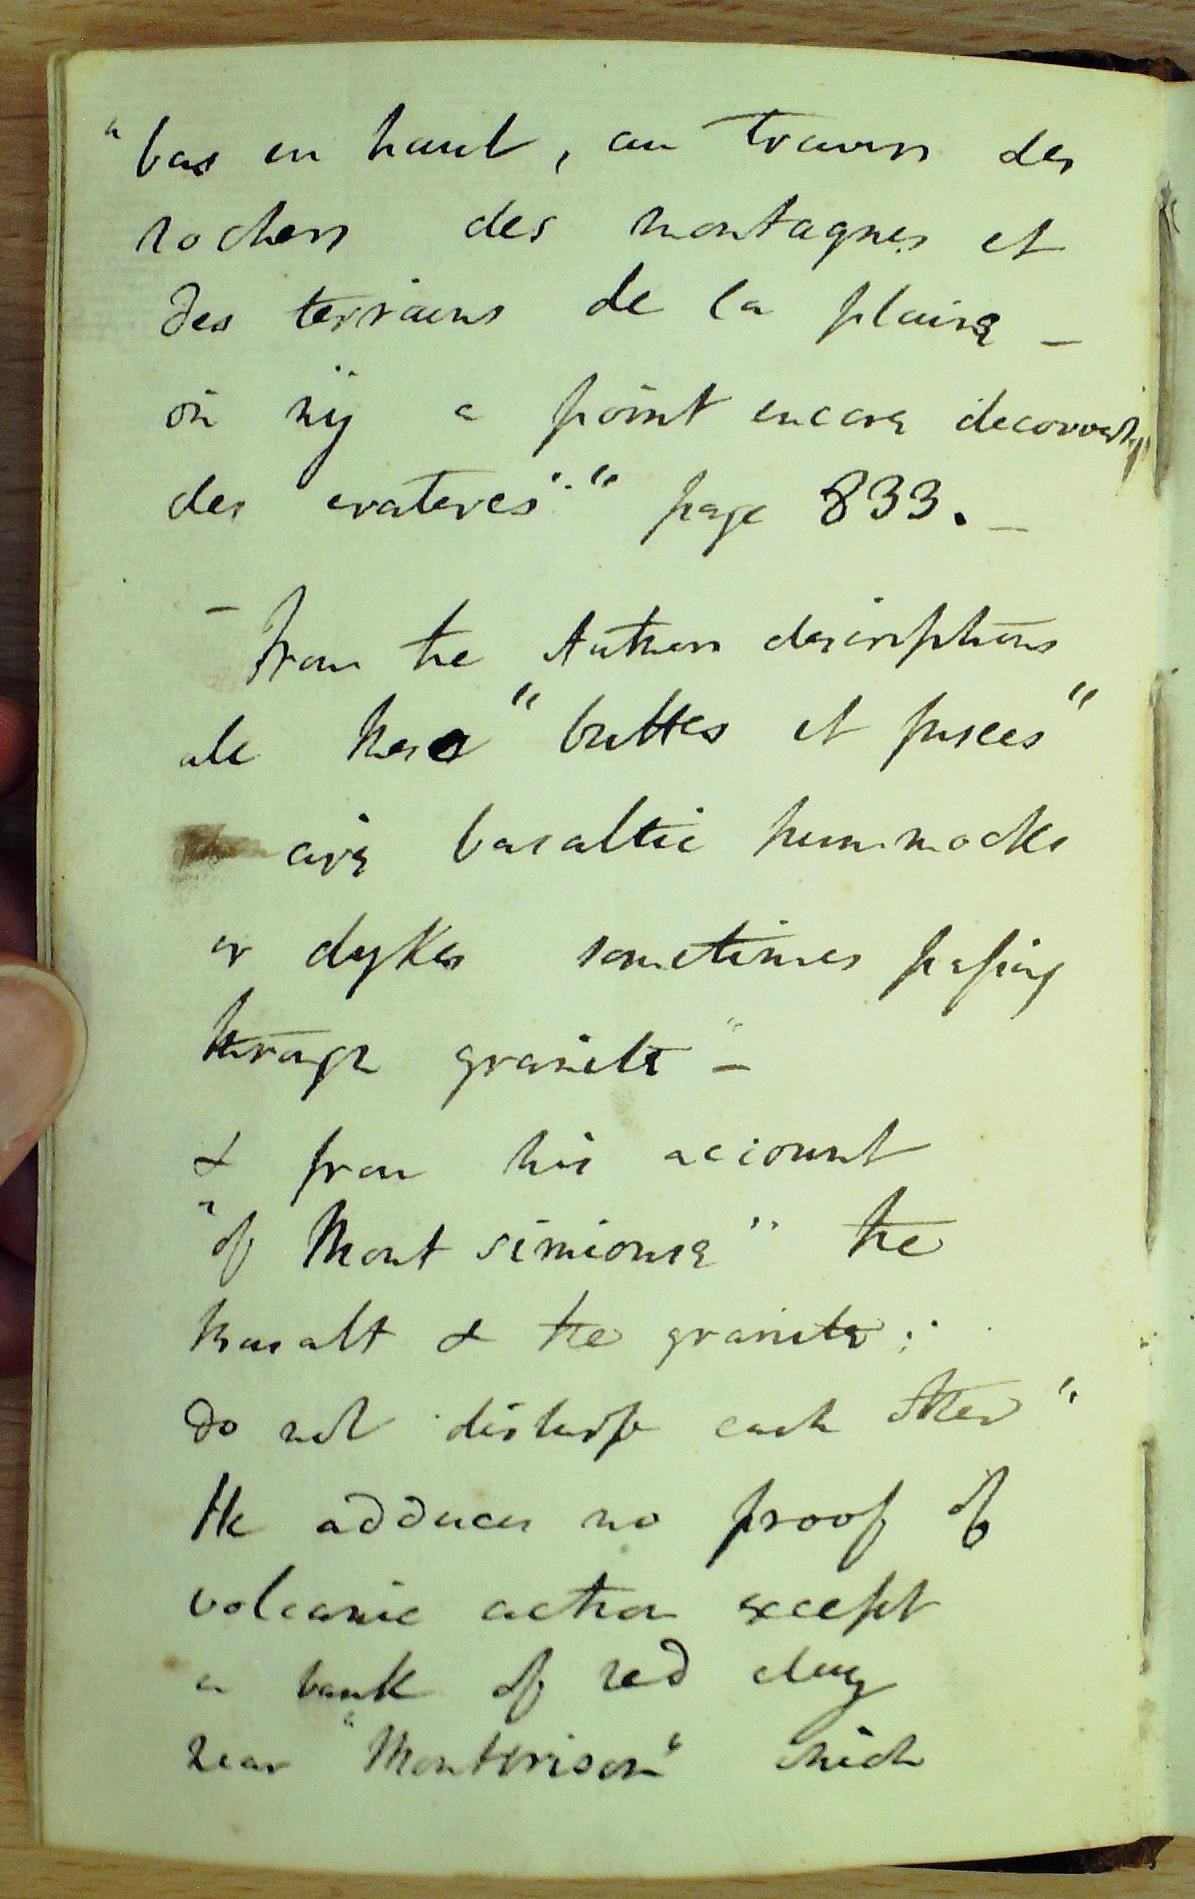 "bas en haut, au travers des
rochers des montagnes et
des terrains de la plaine –
on n'y a point encore decouvert
des crateres"." page 833. –
– From the Authors descriptions
all these "buttes et pisees"
are basaltic hummocks
or dykes sometimes passing
through granite" –
& from his account
"of Mont simioure" the
basalt & the granite:
do not disturb each other"
He adduces no proof of
volcanic action except
a bank of red clay
near "Montbrison" which